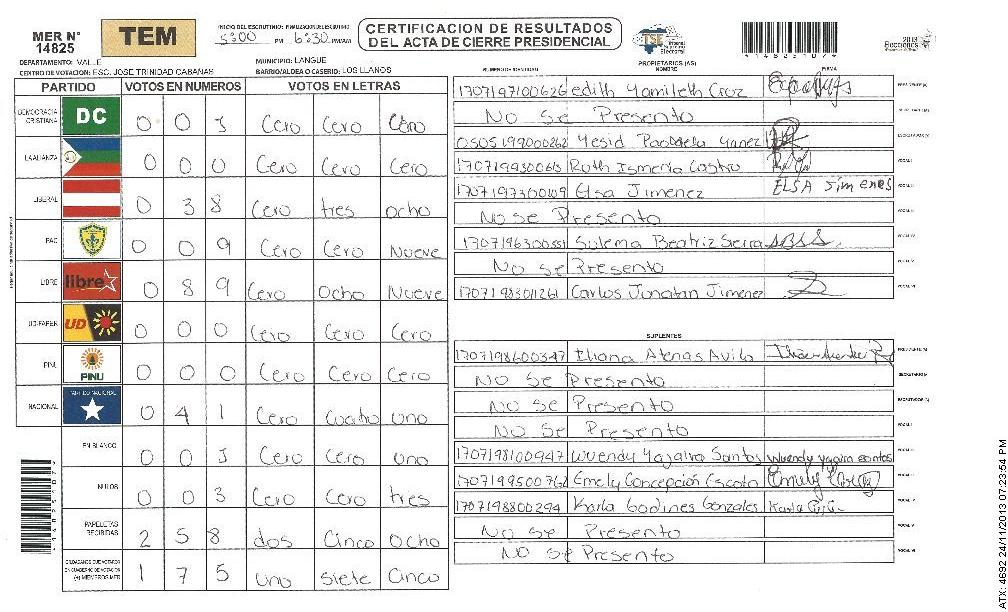 MER N° 14825
TEM
INICIO DEL ESCRUTINIO: FINALIZACION DEL ESCRUTINIO
5:00 PM 6:30 PM/AM
CERTIFICACION DE RESULTADOS
DEL ACTA DE CIERRE PRESIDENCIAL
TSE Tribunal Supremo Electoral
2013 Elecciones
DEPARTAMENTO: VALLE
MUNICIPIO: LANGUE
CENTRO DE VOTACION: ESC. JOSE TRINIDAD CABAÑAS
BARRIO/ALDEA O CASERIO: LOS LLANOS
PARTIDO VOTOS EN NUMEROS VOTOS EN LETRAS
DEMOCRACIA CRISTIANA DC 0 0 1 Cero Cero Cero
LA ALIANZA 0 0 0 Cero Cero Cero
LIBERAL 0 3 8 Cero tres ocho
PAC 0 0 9 Cero Cero Nueve
LIBRE libre 0 8 9 Cero Ocho Nueve
UD-FAPER UD 0 0 0 Cero Cero Cero
PINU PINU 0 0 0 Cero Cero Cero
NACIONAL PARTIDO NACIONAL 0 4 1 Cero Cuatro uno
EN BLANCO 0 0 1 Cero Cero uno
NULOS 0 0 3 Cero Cero tres
PAPELETAS RECIBIDAS 2 5 8 dos Cinco ocho
CIUDADANOS QUE VOTARON EN CUADERNO DE VOTACION (+) MIEMBROS MER 1 7 5 uno siete cinco
PROPIETARIOS (AS)
NUMERO DE IDENTIDAD NOMBRE FIRMA
1707197100626 edith Yamileth Cruz PRESIDENTE (A)
No se Presento SECRETARIO (A)
0505199000262 Yesid Yanez ESCRUTADOR (A)
1707199300613 Ruth Ismeria Castro VOCAL I
1707197300109 Elsa Jimenez ELSA Jimenes VOCAL II
No se Presento VOCAL III
1707196300551 Sulema Beatriz Sierra VOCAL IV
No se Presento VOCAL V
1707198301261 Carlos Jonatan Jimenez VOCAL VI
SUPLENTES
1707198600347 Iliana Atenas Avila PRESIDENTE (A)
No se Presento SECRETARIO (A)
No se Presento ESCRUTADOR (A)
No se Presento VOCAL I
1707198100947 Wuendy Yajaira Santos Wuendy yajaira santos VOCAL II
1707199500762 Emely Concepción Escoto Emely VOCAL III
1707198800294 Karla Godines Gonzales Karla VOCAL IV
No se Presento VOCAL V
No se Presento VOCAL VI
ATX: 4692 24/11/2013 07:23:54 PM